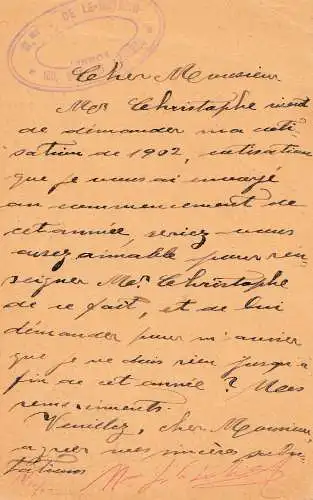 DE LE
LISBOA
Cher Monsieur
Mr Christophe vient
de demander ma coti-
sation de 1902, cotisation
que je vous ai envoyé
au commencement de
cet année, seriez-vous
assez aimable pour ren-
seigner Mr Christophe
de ce fait, et de lui
démander pour m'aviser
que je ne dois rien jusqu'à
fin de cet année? Mes
remerciments.
Veuillez, cher Monsieur,
agréer mes sincères salu-
tations